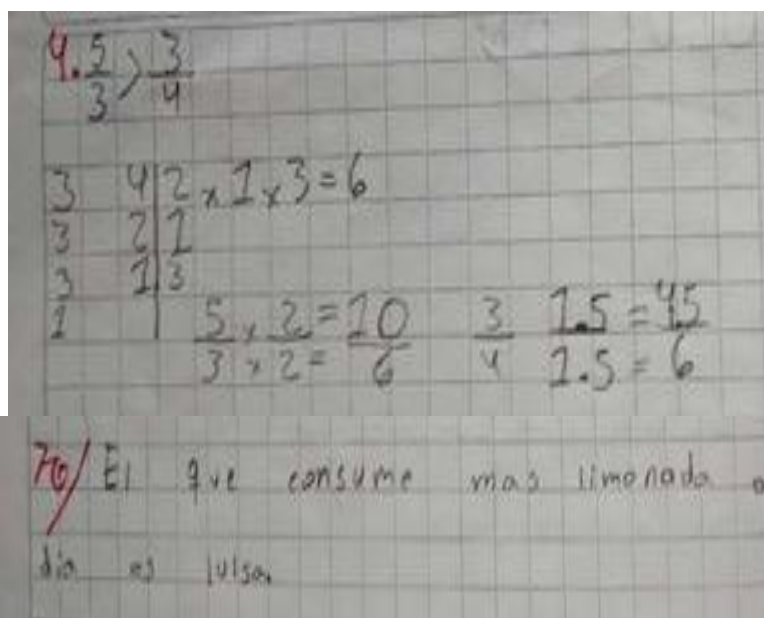 4. 5/3 > 3/4
3 4 | 2 x 1 x 3 = 6
3 2 | 1
3 1 | 3
1
5/3 x 2/2 = 10/6 3/4 1.5/1.5 = 4.5/6
R/ El que consume mas limonada a
dia es luisa.